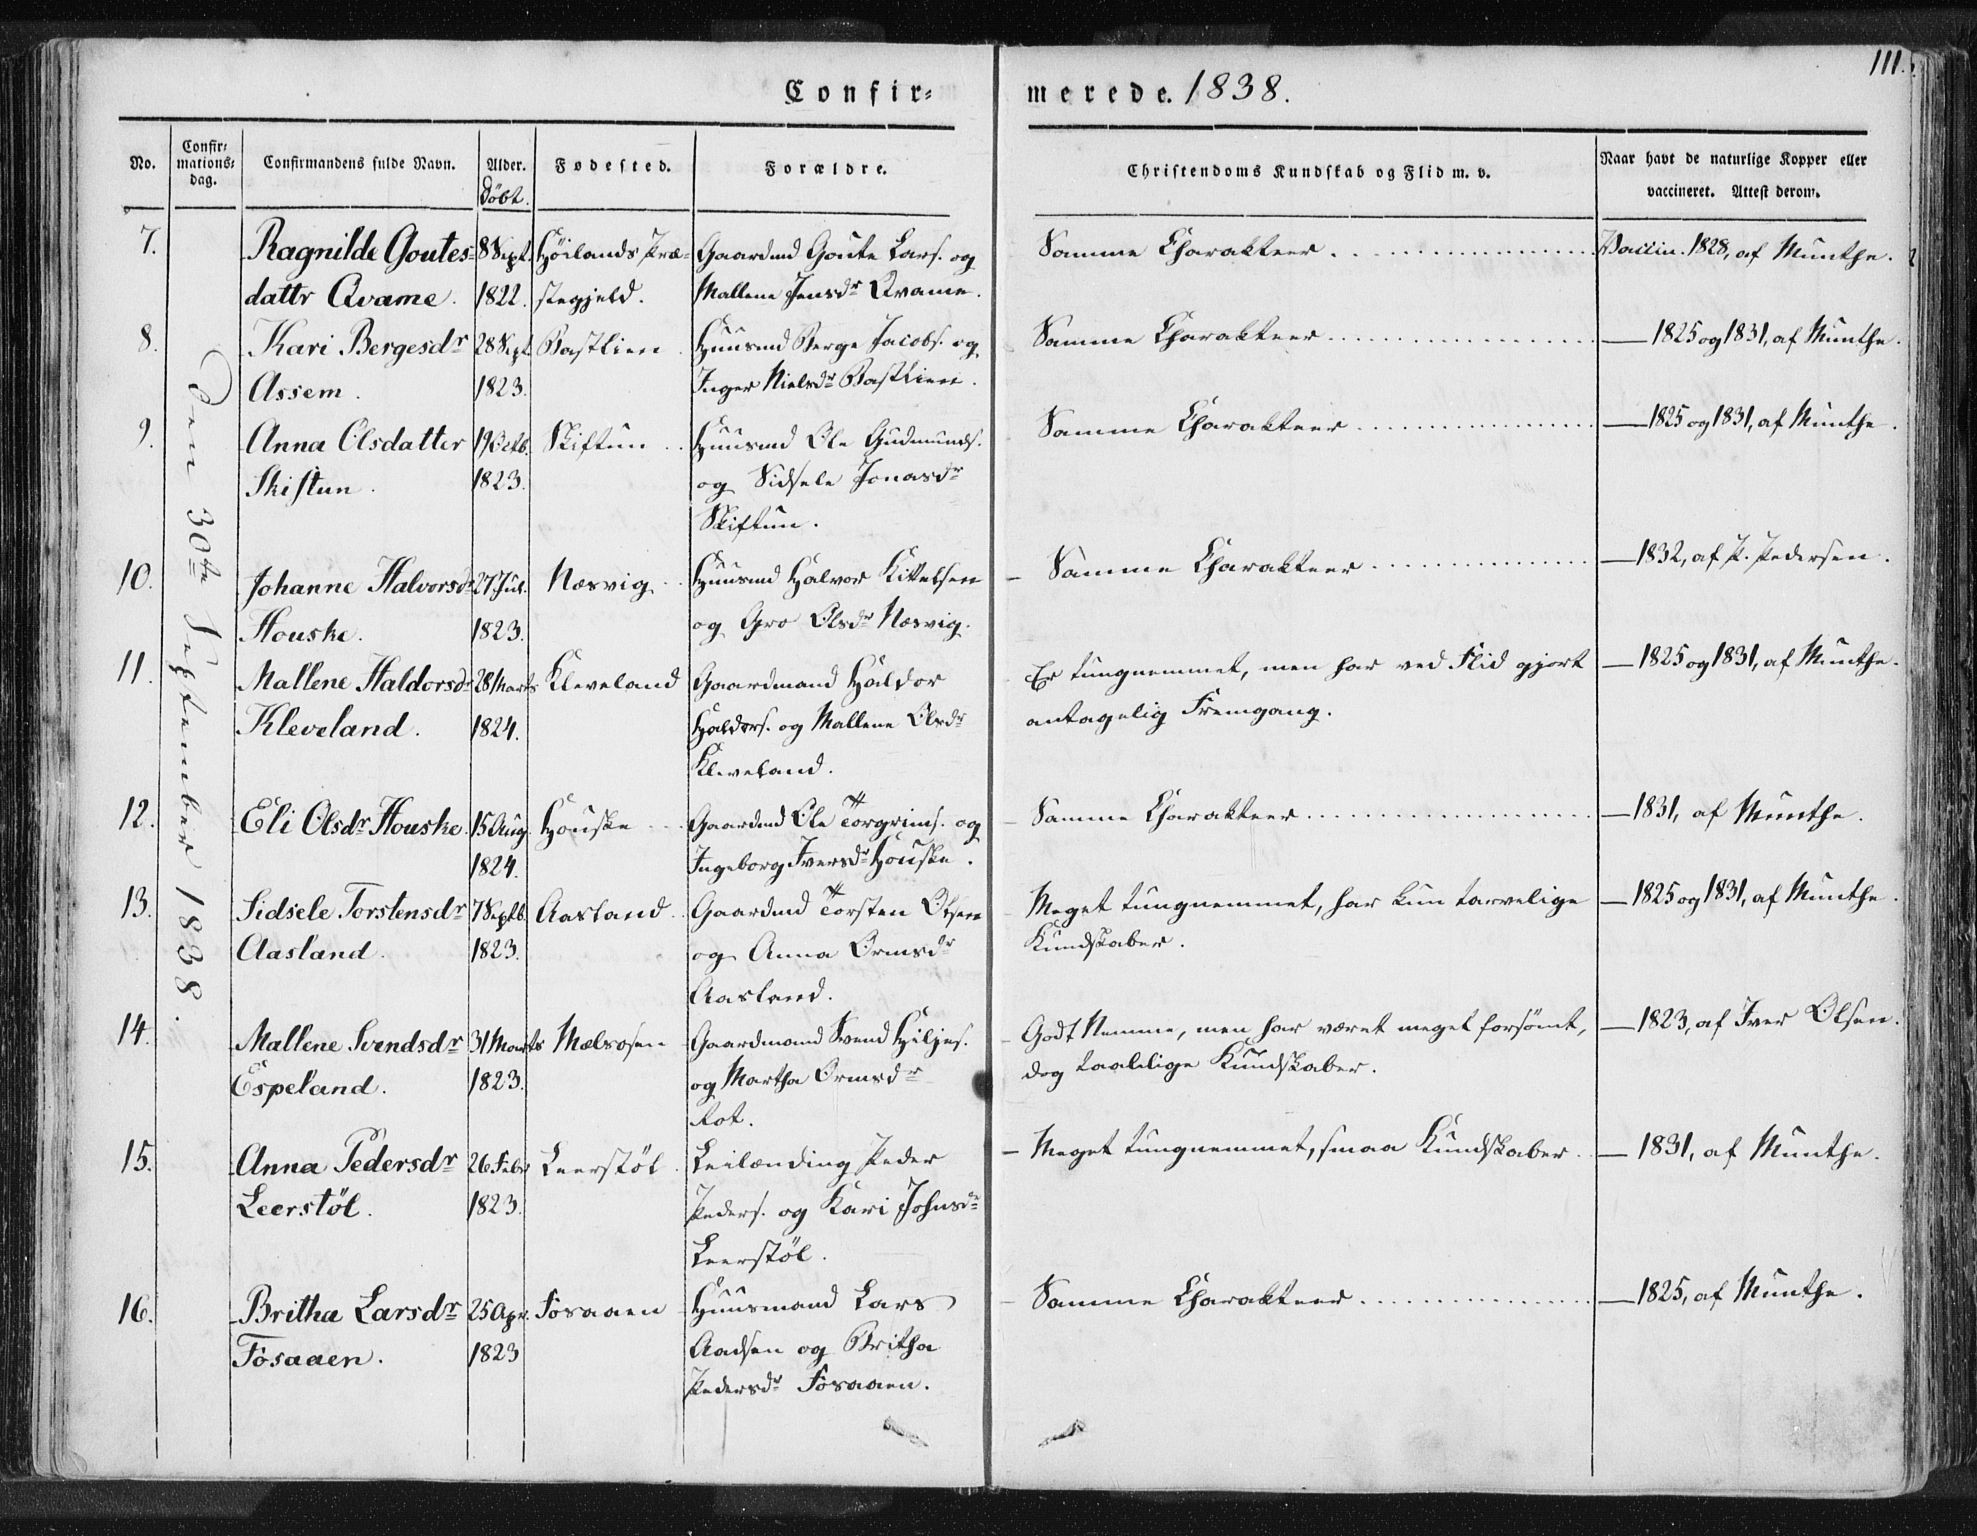 111.
Confir=
merede. 1838.
No.
Confir=
mations=
dag.
Confirmandens fulde Navn.
Alder.
Döbt.
Fødested.
Forældre.
Christendoms Kundskab og Flid m. v.
Naar havt de naturlige Kopper eller
vaccineret. Attest derom.
Den 30te September 1838.
7.
Ragnilde Goutes-
dattr Qvame.
8 Sept.
1822.
Höilands Præ-
stegjeld.
Gaardmd Goute Lars. og
Mallene Jensdr Qvame.
Samme Charakteer
Vaccin. 1828, af Munthe.
8.
Kari Bergesdr
Assem.
28 Sept.
1823.
Bastlien
Huusmd Berge Jacobs. og
Inger Nielsdr Bastlien.
Samme Charakteer
— 1825 og 1831, af Munthe.
9.
Anna Olsdatter
Skiftun.
19 Octb.
1823.
Skiftun
Huusmd Ole Gudmunds.
og Sidsele Jonasdr
Skiftun.
Samme Charakteer
— 1825 og 1831, af Munthe.
10.
Johanne Halvorsdr
Houske.
27 Jul.
1823.
Næsvig
Huusmd Halvor Kittelsen
og Gro Olsdr Næsvig.
Samme Charakteer
— 1832, af P. Pedersen.
11.
Mallene Haldorsdr
Kleveland.
28 Marts
1824.
Kleveland
Gaardmand Haldor
Haldors. og Mallene Olsdr
Kleveland.
Er tungnemmet, men har ved Flid gjort
antagelig Fremgang.
— 1825 og 1831, af Munthe.
12.
Eli Olsdr Houske.
15 Aug.
1824.
Houske
Gaardmd Ole Torgrims. og
Ingeborg Iversdr Houske.
Samme Charakteer
— 1831, af Munthe.
13.
Sidsele Torstensdr
Aasland.
7 Septb.
1823.
Aasland
Gaardmd Torsten Olsen
og Anna Ormsdr
Aasland.
Meget tungnemmet, har kun tarvelige
Kundskaber.
— 1825 og 1831, af Munthe.
14.
Mallene Svendsdr
Espeland.
31 Marts
1823.
Mælsosen
Gaardmand Svend Hiljes.
og Martha Ormsdr
Rot.
Godt Nemme, men har været meget forsömt,
dog taalelige Kundskaber.
— 1823, af Iver Olsen.
15.
Anna Pedersdr
Leerstöl.
26 Febr
1823.
Leerstöl
Leilænding Peder
Peders. og Kari Johnsdr
Leerstöl.
Meget tungnemmet, smaa Kundskaber
— 1831, af Munthe.
16.
Britha Larsdr
Fosaaen.
25 Apr.
1823
Fosaaen
Huusmand Lars
Aadsen og Britha
Pedersdr Fosaaen.
Samme Charakteer
— 1825, af Munthe.